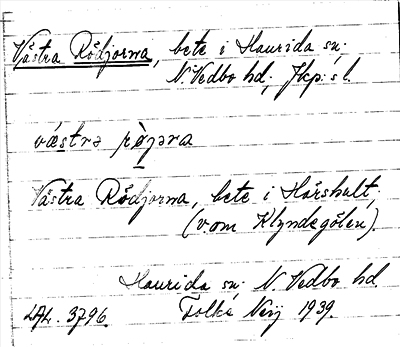 Västra Rödjorna, bete i Haurida sn.
N. Vedbo hd, Jkp:s l.
västrə røjəra
Västra Rödjorna, bete i Hårshult,
(v. om Klyndegölen).
Haurida sn. N. Vedbo hd
LAL. 3796. Folke Neij 1939.